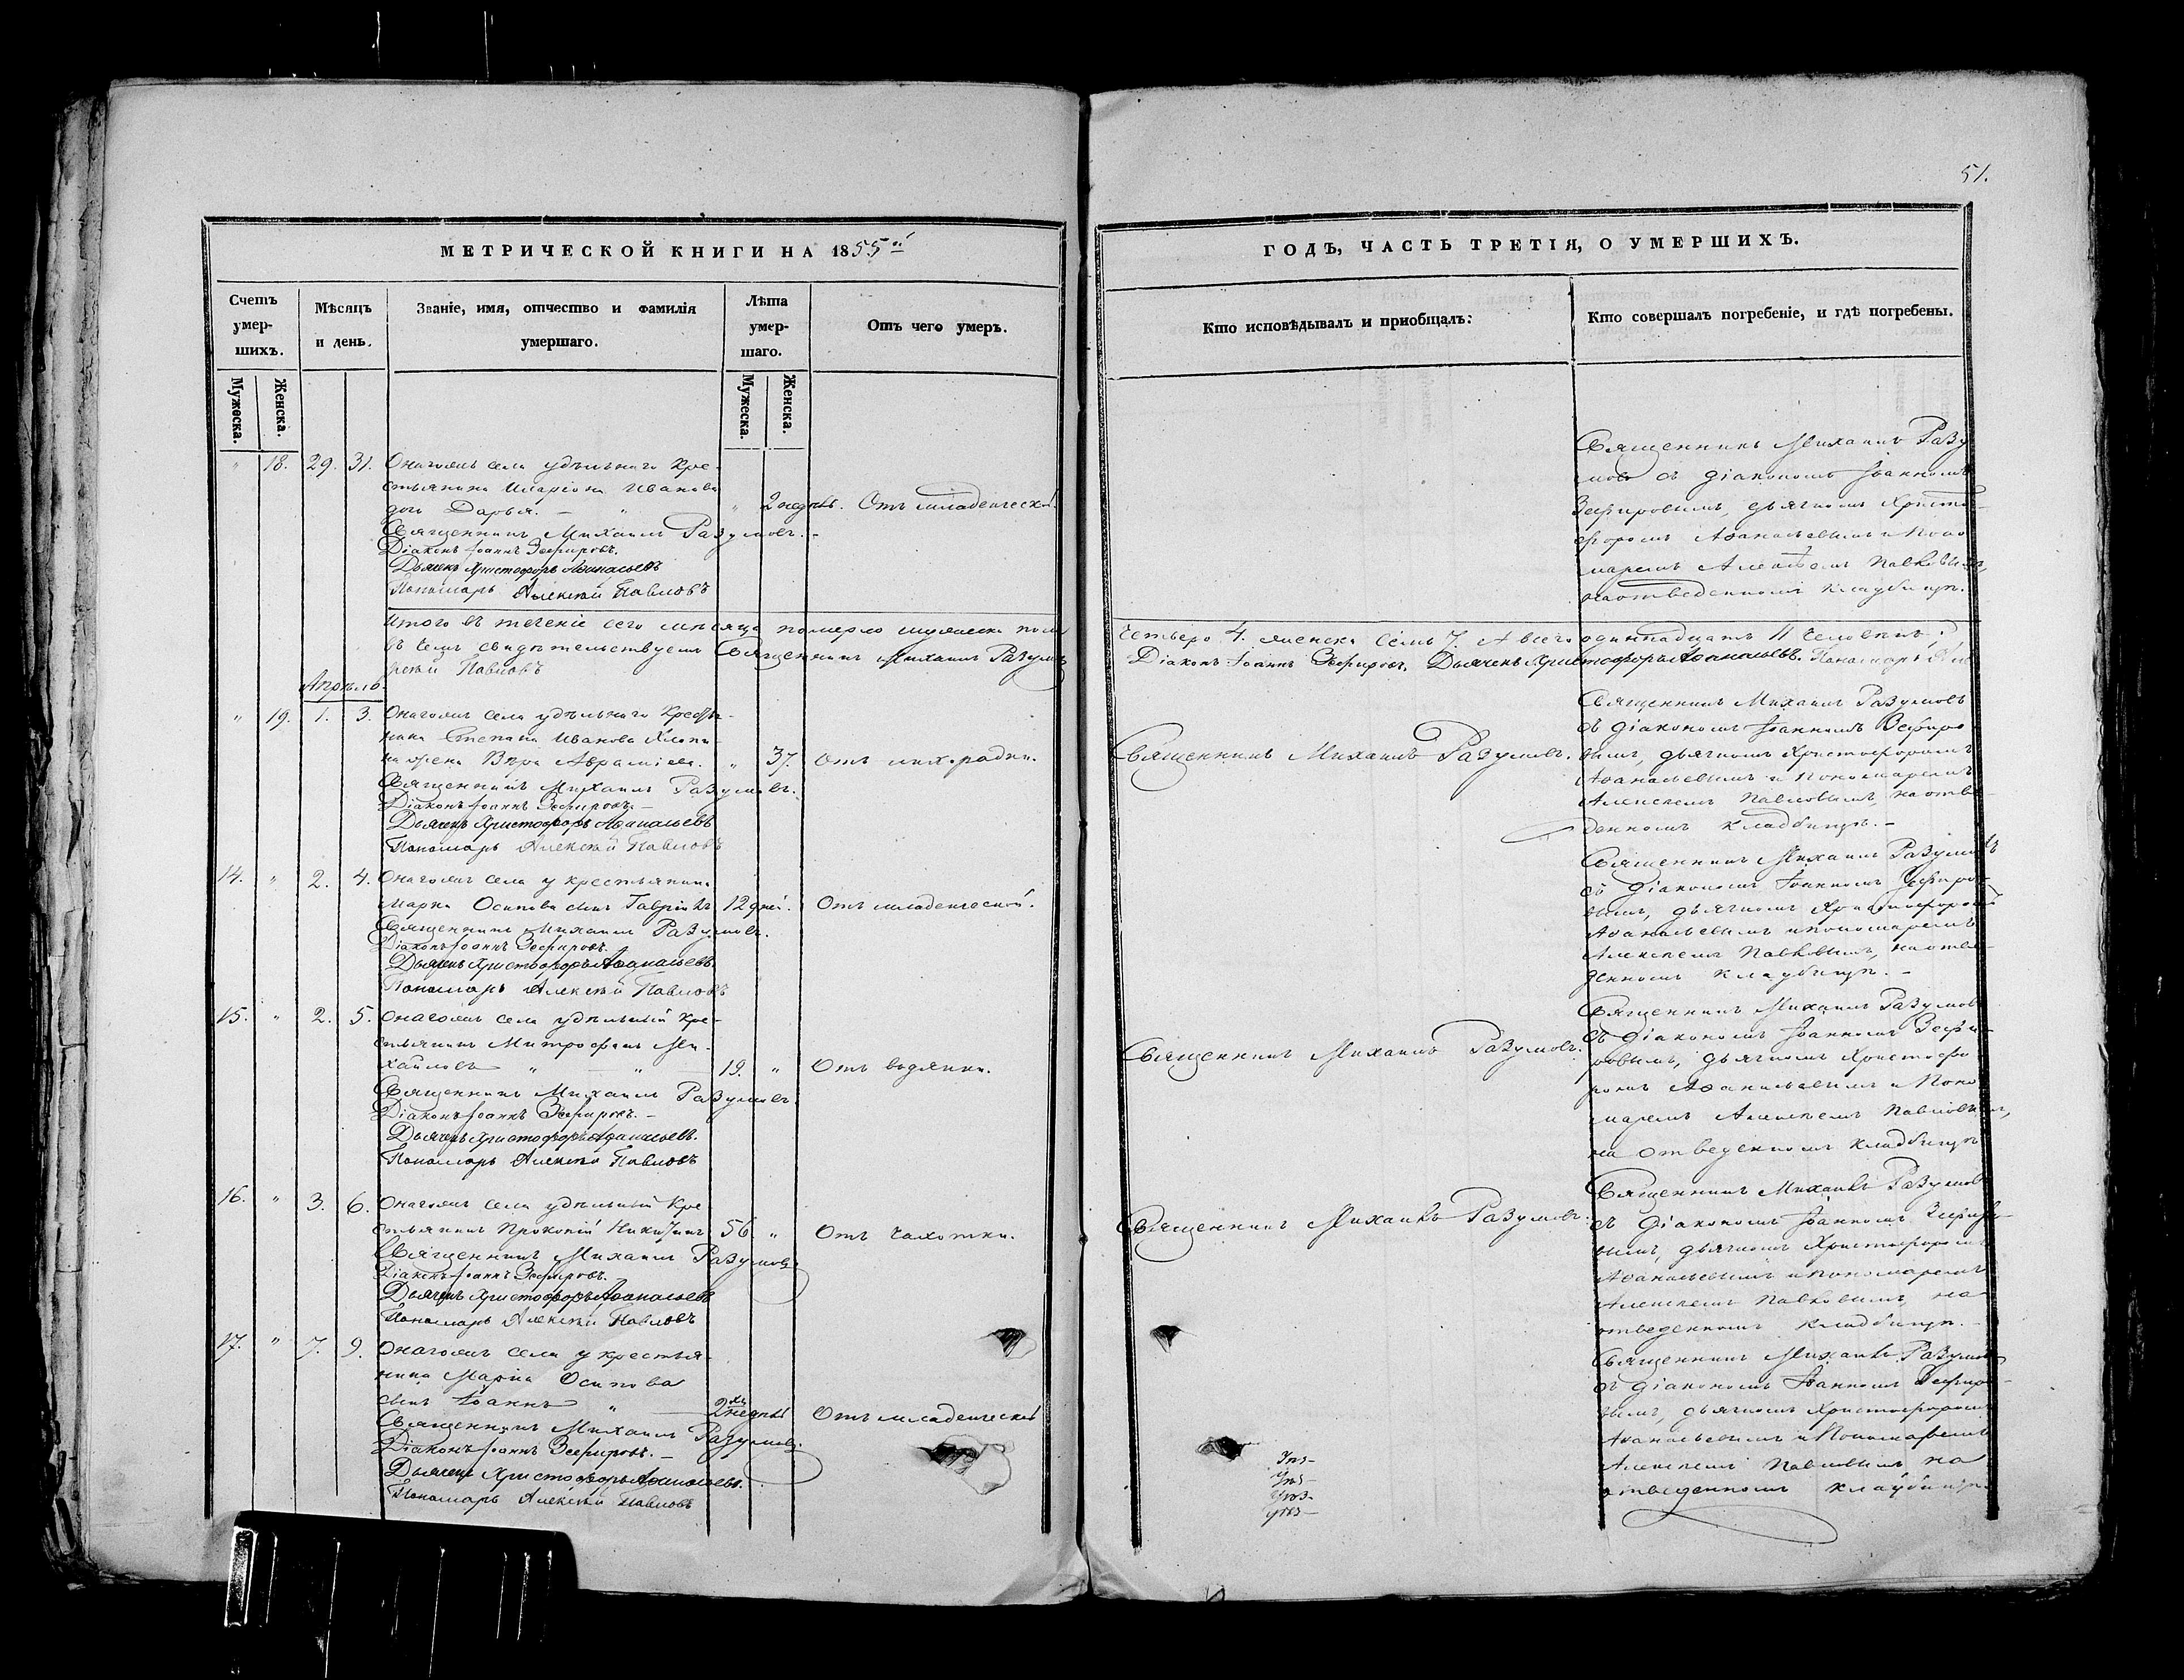 51.
МЕТРИЧЕСКОЙ КНИГИ НА 1855ый
ГОДЪ, ЧАСТЬ ТРЕТІЯ, О УМЕРШИХЪ.
Счетъ умер-
шихъ.
Мужеска.
Женска.
Мѣсяцъ
и день.
Званіе, имя, отчество и фамилія
умершаго.
Лѣта
умер-
шаго.
Мужеска.
Женска.
Отъ чего умеръ.
Кто исповѣдывалъ и приобщалъ:
Кто совершалъ погребеніе, и гдѣ погребены.
" 18. 29. 31. Онагожъ села удѣльнаго кре-
стьянина Иларіона Иванова
дочь Дарья. — " " 2 недѣль. Отъ младенческой.
Священникъ Михаилъ Разумовъ.
Діаконъ Іоаннъ Зефировъ.
Дьячекъ Христофоръ Аѳанасьевъ
Пономарь Алексѣй Павловъ
Священникъ Михаилъ Разу
мовъ съ діакономъ Іоанномъ
Зефировымъ, дьячкомъ Христо-
форомъ Аѳанасьевымъ и Поно
маремъ Алексѣемъ Павловымъ,
на отведенномъ кладбищѣ.
Итого въ теченіе сего мѣсяца померло мужеска пола
четверо 4. женска семь 7. А всего одиннадцать 11 человѣкъ.
въ чемъ свидѣтельствуемъ Священникъ Михаилъ Разумовъ
Діаконъ Іоаннъ Зефировъ. Дьячекъ Христофоръ Аѳанасьевъ. Пономарь Але
ксѣй Павловъ
Апрѣль.
" 19. 1. 3. Онагожъ села удѣльнаго крестья-
нина Степана Иванова
жена Вѣра Авраміева. " 37. Отъ лихорадки.
Священникъ Михаилъ Разумовъ.
Діаконъ Іоаннъ Зефировъ. —
Дьячекъ Христофоръ Аѳанасьевъ
Пономарь Алексѣй Павловъ
Священникъ Михаилъ Разумовъ.
Священникъ Михаилъ Разумовъ
съ діакономъ Іоанномъ Зефиро
вымъ, дьячкомъ Христофоромъ
Аѳанасьевымъ и Пономаремъ
Алексѣемъ Павловымъ, на отве-
денномъ кладбищѣ. —
14. " 2. 4. Онагожъ села у крестьянина
Марка Осипова сынъ Гавріилъ 12 дней. Отъ младенческой.
Священникъ Михаилъ Разумовъ.
Діаконъ Іоаннъ Зефировъ.
Дьячекъ Христофоръ Аѳанасьевъ.
Пономарь Алексѣй Павловъ
Священникъ Михаилъ Разумовъ
съ діакономъ Іоанномъ Зефиро-
вымъ, дьячкомъ Христофоромъ
Аѳанасьевымъ и пономаремъ
Алексѣемъ Павловымъ, на отве-
денномъ кладбищѣ. —
15. " 2. 5. Онагожъ села удѣльный кре-
стьянинъ Митрофанъ Ми-
хайловъ " " 19. " Отъ водянки.
Священникъ Михаилъ Разумовъ.
Діаконъ Іоаннъ Зефировъ. —
Дьячекъ Христофоръ Аѳанасьевъ.
Пономарь Алексѣй Павловъ
Священникъ Михаилъ Разумовъ.
Священникъ Михаилъ Разумовъ
съ діакономъ Іоанномъ Зефи-
ровымъ, дьячкомъ Христофо
ромъ Аѳанасьевымъ и Поно
маремъ Алексѣемъ Павловымъ,
на отведенномъ кладбищѣ
16. " 3. 6. Онагожъ села удѣльный кре
стьянинъ Прокопій Никитинъ 56 " Отъ чахотки.
Священникъ Михаилъ Разумовъ
Діаконъ Іоаннъ Зефировъ.
Дьячекъ Христофоръ Аѳанасьевъ
Пономарь Алексѣй Павловъ
Священникъ Михаилъ Разумовъ.
Священникъ Михаилъ Разумовъ
съ діакономъ Іоанномъ Зефиро
вымъ, дьячкомъ Христофоромъ
Аѳанасьевымъ и Пономаремъ
Алексѣемъ Павловымъ, на
отведенномъ кладбищѣ. —
17. " 7. 9. Онагожъ села у крестья-
нина Марка Осипова
сынъ Іоаннъ " 2хъ недѣль Отъ младенческой
Священникъ Михаилъ Разумовъ.
Діаконъ Іоаннъ Зефировъ. —
Дьячекъ Христофоръ Аѳанасьевъ.
Пономарь Алексѣй Павловъ
Священникъ Михаилъ Разумовъ
съ діакономъ Іоанномъ Зефиро-
вымъ, дьячкомъ Христофоромъ
Аѳанасьевымъ и Пономаремъ
Алексѣемъ Павловымъ на
отведенномъ кладбищѣ